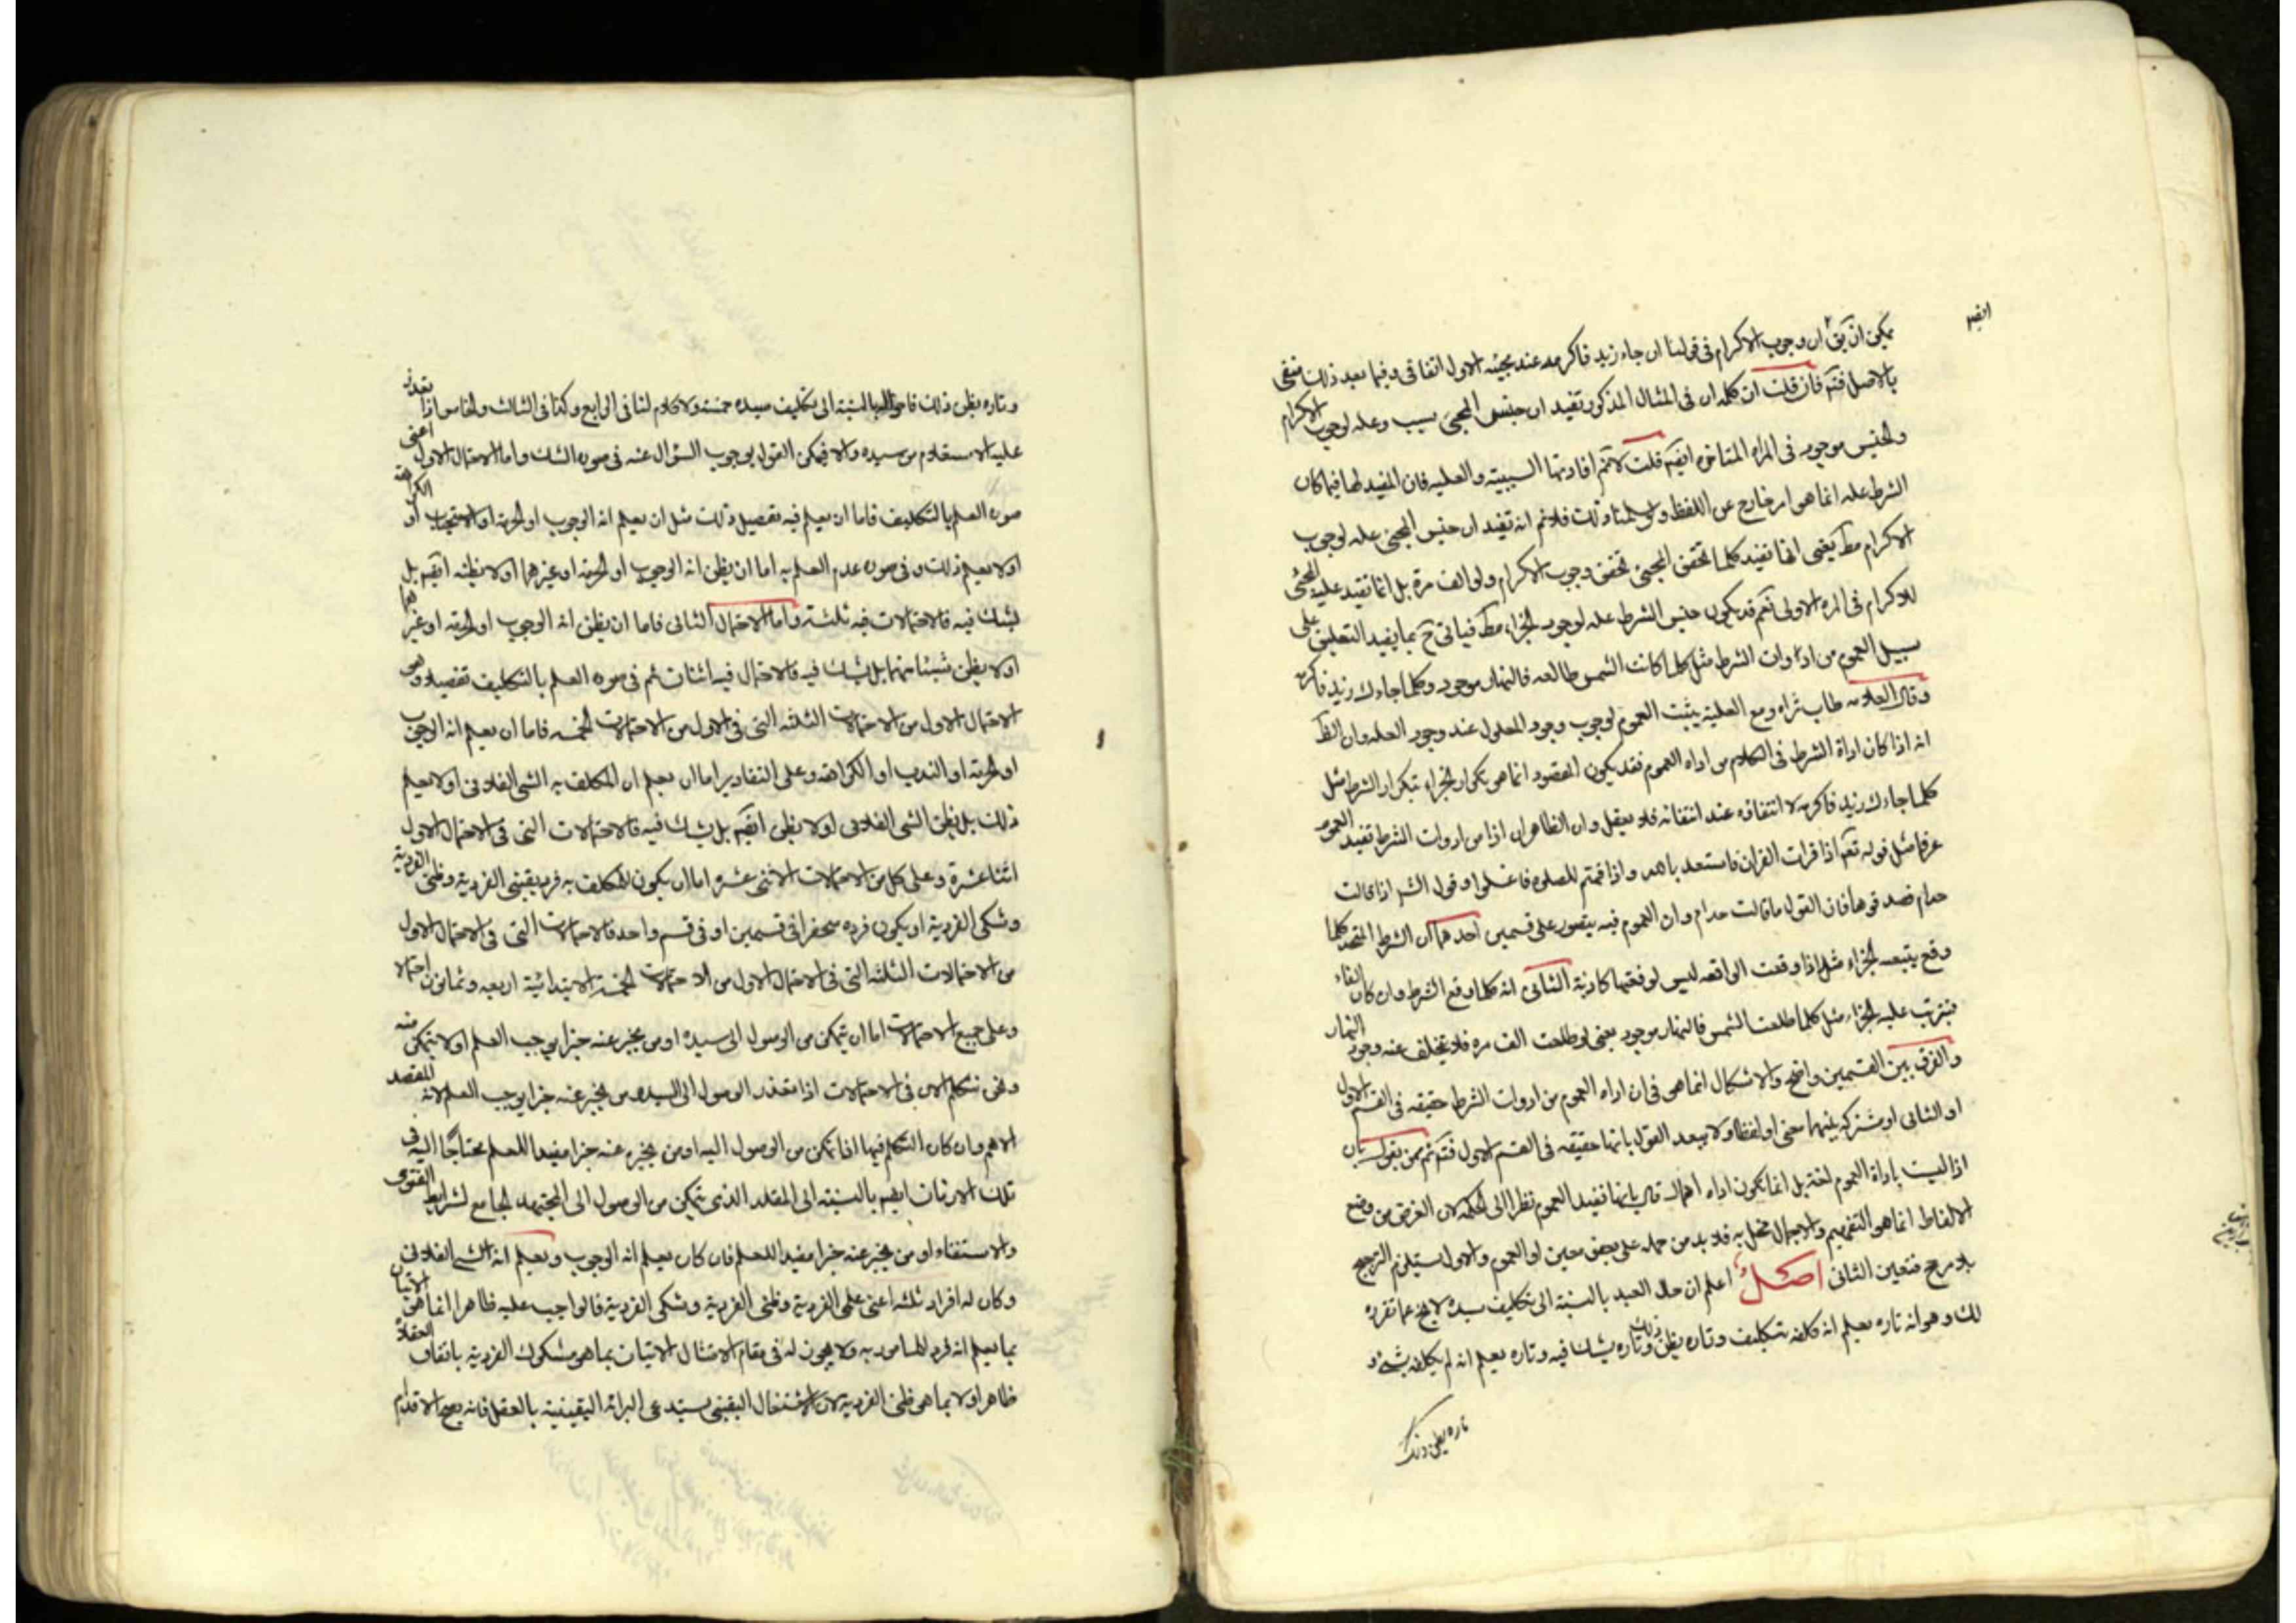 ايضه
يمكن ان يق ان وجوب الاكرام فى قولنا ان جاء زيد فاكرمه عند مجيئه الاول اتفاقى وفيما بعد ذلك منفى
بالاصل فتم فان قلت ان كلمه ان فى المثال المذكور تفيد ان جنس المجئ سبب وعله لوجوب الاكرام
والجنس موجود فى المراه المتاخره ايضه قلت لانم افادتها السببية والعليه فان المفيد لها فيما كان
الشرط عله انما هو امر خارج عن اللفظ ولو سلمنا ذلك فلانم انه تفيد ان جنس المجئ عله لوجوب
الاكرام مط يعنى انها تفيد كلما تحقق المجئ تحقق وجوب الاكرام ولو الف مرة بل انما تفيد عليه المجئ
للاكرام فى المره الاولى نعم قد يكون جنس الشرط عله لوجود الجزاء مط فياتى ح بما يفيد التعليق على
سبيل العموم من ادوات الشرط مثل كلما كانت الشمس طالعه فالنهار موجود وكلما جاءك زيد فاكرمه
وقال العلامه طاب ثراه ومع العلية يثبت العموم لوجوب وجود المعلول عند وجود العله وان الظ
انه اذا كان اداة الشرط فى الكلام من اداه العموم فقد يكون المقصود انما هو تكرار الجزاء بتكرار الشرط مثل
كلما جاءك زيد فاكرمه لا انتفاؤه عند انتفائه فلا يعقل وان الظاهر ان اذا من ادوات الشرط تفيد العموم
عرفا مثل قوله تعه اذا قرات القران فاستعذ بالله واذا قمتم للصلوه فاغسلوا وقول الشر اذا قالت
حذام فصدقوها فان القول ما قالت حذام وان العموم فيه يتصور على قسمين احدهما ان الشرط المتحد كلما
وقع يتبعه الجزاء مثل اذا وقعت الواقعه ليس لوقعتها كاذبة الثانى انه كلما وقع الشرط وان كان الفاء
فيترتب عليه الجزاء مثل كلما طلعت الشمس فالنهار موجود يعنى لو طلعت الف مره فلا يتخلف عنه وجود النهار
والفرق بين القسمين واضح والاشكال انما هو فى ان اداه العموم من ادوات الشرط حقيقه فى القسم الاول
او الثانى او مشتركه بينهما معنى او لفظا ولا يبعد القول بانها حقيقه فى القسم الاول فتم ثم من يقول بان
اذا ليست باداة العموم لغة بل انما تكون اداه اهمال قال بانها تفيد العموم نظرا الى الحكمه لان الغرض من وضع
الالفاظ انما هو التفهيم والاجمال مخل به فلا بد من حمله على بعض معين او العموم والاول يستلزم الترجيح
بلا مرجح فتعين الثانى اصل اعلم ان حال العبد بالنسبة الى تكليف سيده لا يخ عما تقرر
لك وهو انه تاره يعلم انه كلفه بتكليف وتاره يظن ذلك وتاره يشك فيه وتاره يعلم انه لم يكلفه بشئ و
تاره يظن ذلك
وتاره يظن ذلك فاحواله بالنسبة الى تكليف سيده خمسة ولا كلام لنا فى الرابع وكذا فى الثالث والخامس اذا تعذر
عليه الاستعلام من سيده والا فيمكن القول بوجوب السؤال عنه فى صوره الشك واما الاحتمال الاول اعنى
صوره العلم بالتكليف فاما ان يعلم فيه تفصيل ذلك مثل ان يعلم انه الوجوب او الحرمة او الاستحباب او الكراهة
او لا يعلم ذلك وفى صوره عدم العلم به اما ان يظن انه الوجوب او الحرمة او غيرهما او لا يظنه ايضه بل
يشك فيه فالاحتمالات فيه ثلثة واما الاحتمال الثانى فاما ان يظن انه الوجوب او الحرمة او غيرهما
او لا يظن شيئا منهما بل يشك فيه فالاحتمال فيه اثنان ثم فى صوره العلم بالتكليف تفصيلا وهو
الاحتمال الاول من الاحتمالات الثلثه التى فى الاول من الاحتمالات الخمسه فاما ان يعلم انه الوجوب
او الحرمة او الندب او الكراهة وعلى التقادير اما ان يعلم ان المكلف به الشئ الفلانى او لا يعلم
ذلك بل يظن الشئ الفلانى او لا يظن ايضه بل يشك فيه فالاحتمالات التى فى الاحتمال الاول
اثنا عشرة وعلى كل من الاحتمالات الاثنى عشره اما ان يكون للمكلف به فرد يقينى الفردية وظنى الفردية
وشكى الفردية او يكون فرده منحصرا فى قسمين او فى قسم واحد فالاحتمالات التى فى الاحتمال الاول
من الاحتمالات الثلثه التى فى الاحتمال الاول من الاحتمالات الخمسة الابتدائية اربعه وثمانون احتمالا
وعلى جميع الاحتمالات اما ان يتمكن من الوصول الى سيده او من يخبر عنه خبرا يوجب العلم او لا يتمكن منه
ونحن نتكلم الان فى الاحتمالات اذا تعذر الوصول الى السيد ومن يخبر عنه خبرا يوجب العلم لانه المقصد
الاهم وان كان التكلم فيها اذا تمكن من الوصول اليه او من يخبره عنه خبرا مفيدا للعلم محتاجا اليه فى
تلك الازمان ايضه بالنسبة الى المقلد الذى يتمكن من الوصول الى المجتهد الجامع لشرايط الفتوى
والاستفتاء او من يخبر عنه خبرا مفيدا للعلم فان كان يعلم انه الوجوب ويعلم انه الشئ الفلانى
وكان له افراد ثلثه اعنى علمى الفردية وظنى الفردية وشكى الفردية فالواجب عليه ظاهرا انما هو الاتيان
بما يعلم انه فرد للمامور به ولا يجوز له فى مقام الامتثال الاتيان بما هو مشكوك الفردية باتفاق العقلاء
ظاهرا ولا بما هو ظنى الفردية لان الاشتغال اليقينى يستدعى البرائة اليقينية بالعقل فانه يصح الاقدام